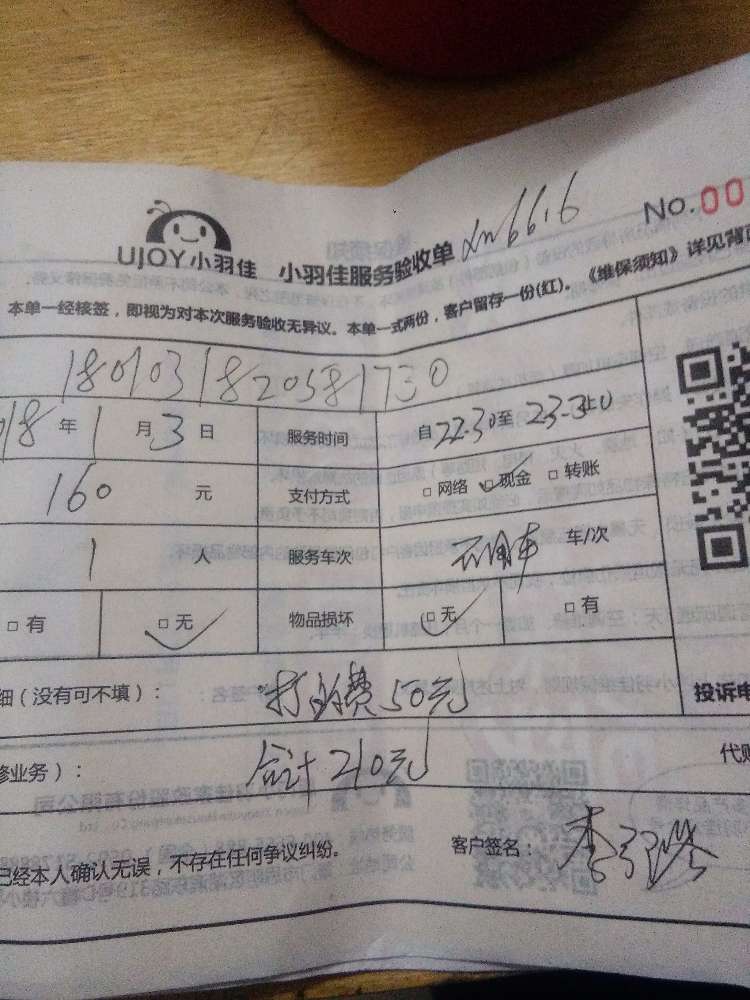 No.00
UJOY小羽佳 小羽佳服务验收单 6616
本单一经核签，即视为对本次服务验收无异议。本单一式两份，客户留存一份(红)。《维保须知》详见背面
1801031820581730
018年1月3日 服务时间 自22.30至23.350
160元 支付方式 □网络 □现金 □转账
1人 服务车次 车/次
□有 □无 物品损坏 □无 □有
细（没有可不填）： 打的费50元 投诉电
修业务）： 合计210元 代购
已经本人确认无误，不存在任何争议纠纷。 客户签名： 李